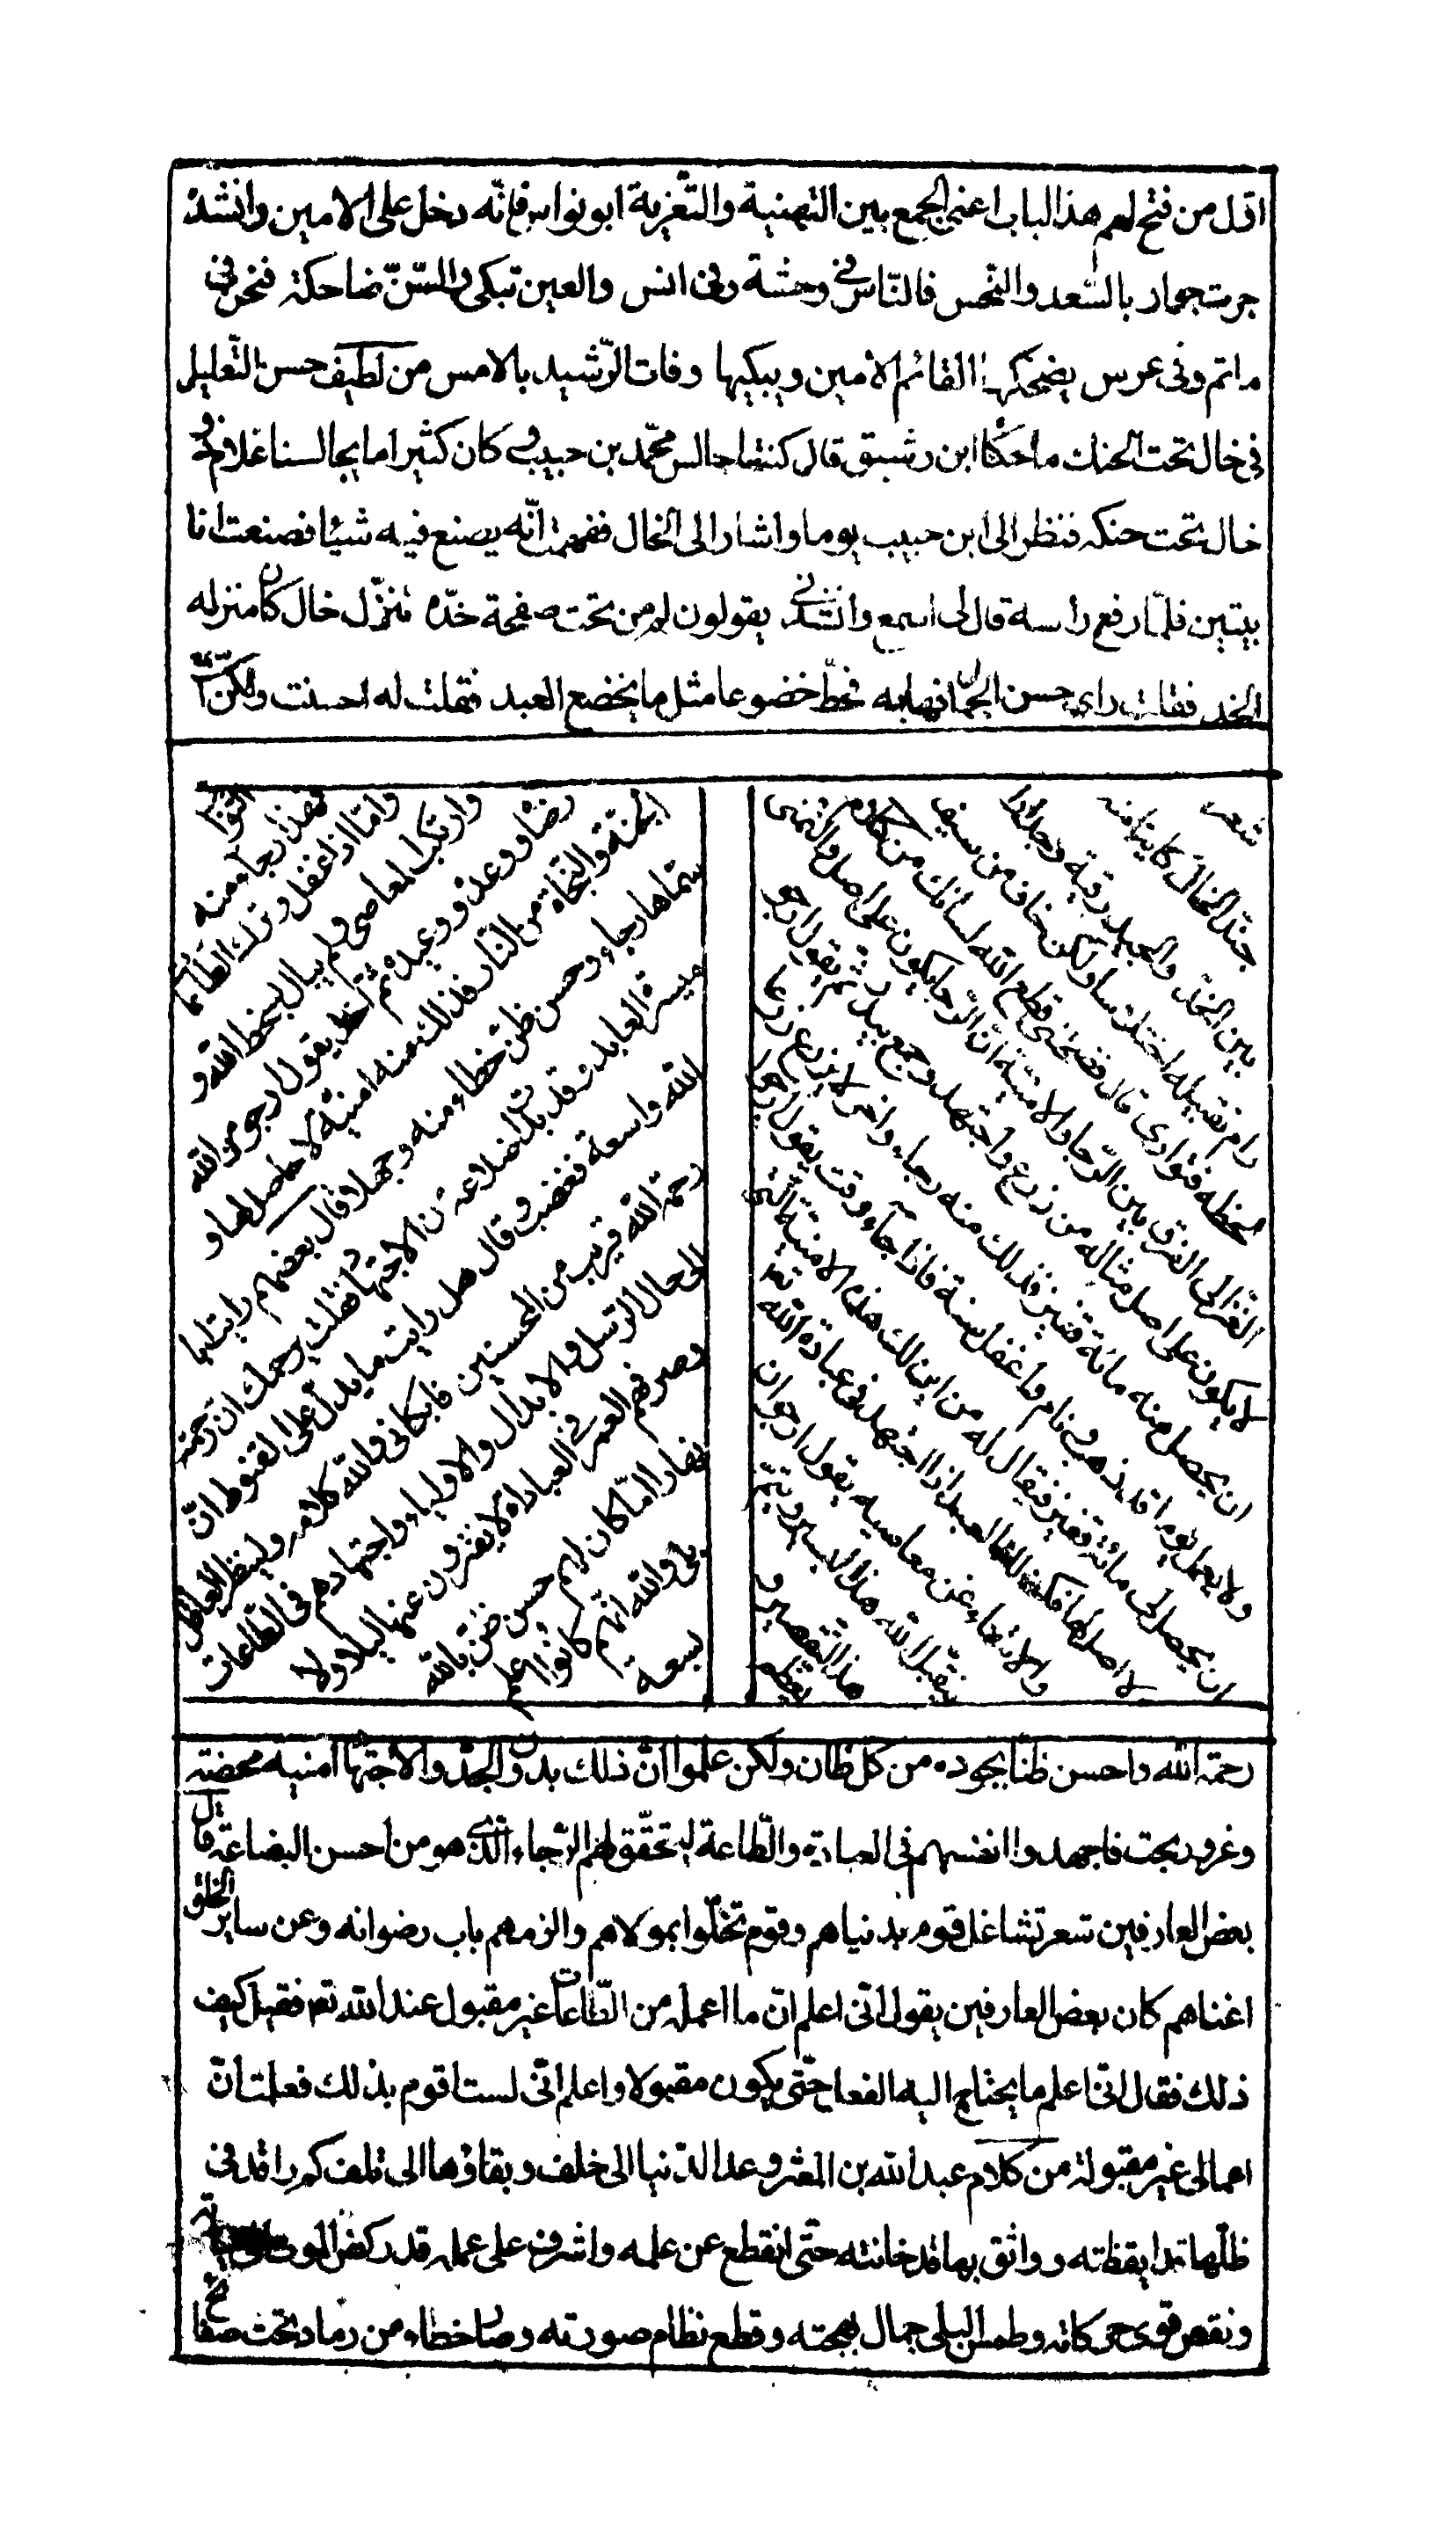 اوّل من فتح لهم هذا الباب اعنى الجمع بين التهنية والتّعزية ابو نواس فانّه دخل على الامين وانشد
جرت جوار بالسّعد والنّحس فالنّاس فى وحشة وفى انس والعين تبكى والسّنّ ضاحكة فنحن فى
ماتم وفى عرس يضحكها القائم الامين ويبكيها وفات الرّشيد بالامس من لطيف حسن التّعليل
فى خال تحت الحنك ما حكاه ابن رشيق قال كنت اجالس محمّد بن حبيب وكان كثيرا ما يجالسنا غلام ذو
خال تحت حنكه فنظر الى ابن حبيب يوما واشار الى الخال ففهمت انّه يصنع فيه شيئا فصنعت انا
بيتين فلمّا رفع راسه قال لى اسمع وانشدنى يقولون لم من تحت صفحة خدّه تنزّل خال كان منزله
الخد فقلت راى حسن الجمال فهابه فحطّ خضوعا مثل ما يخضع العبد فقلت له احسنت ولكن اسمع
شعر
حبّذا الخال كاينا منه
بين الخدّ والجيد رقبة وحذارا
رام تقبيله اختلاسا ولكن خاف من سيف
لحظه فتوارى قال فضحنى قطع الله لسانك من كلام
الغزّالى الفرق بين الرّجا والامنيّة انّ الرّجا يكون على اصل والتّمنى
لا يكون على اصل مثاله من زرع واجتهد وجمع بيدرا ثمّ يقول ارجو
ان يحصل منه مائة قفيز فذلك منه رجاء واخر لا يزرع زرعا
ولا يعمل يوما قد ذهب ونام واغفل سنة فاذا جاء وقت يقول ارجو
ان يحصل لى مائة قفيز فيقال له من اين لك هذه الامنية الّتى
لا اصل لها فكذلك العبد اذا اجتهد فى عبادة الله تع
والانتهاء عن معاصيه يقول ارجو ان
يتقبّل الله هذا اليسير ويتمّ
هذا التقصير و
يعظم
الثّواب
فهذا رجاء منه
وامّا اذا غفل وترك الطّاعات
وارتكب المعاصى ولم يبال بسخط الله و
رضاه ووعده ووعيده ثمّ اخذ يقول ارجو من الله
الجنّة والنّجاة من النّار فذلك منه امنيّة لا حاصل لها و
سمّاها رجاء وحسن ظنّ خطاء منه وجهلا قال بعضهم رايت ابا
ميسرة العابد وقد بدت اضلاعه من الاجتهاد فقلت يرحمك الله ان رحمة
الله واسعة فغضب وقال هل رايت ما يدلّ على القنوط انّ
رحمة الله قريب من المحسنين فابكانى والله كلامه ولينظر العاقل
الى حال الرّسل والابدال والاولياء واجتهادهم فى الطّاعات
وصرفهم العمر فى العبادة لا يفترون عنها ليلا ولا
نهارا امّا كان لهم حسن ظنّ بالله
بلى والله انّهم كانوا اعلم
بسعة
رحمة الله واحسن ظنّا بجوده من كل ظان ولكن علموا انّ ذلك بدون الجدّ والاجتهاد امنية محضة
وغرور بحت فاجهدوا انفسهم فى العبادة والطّاعة ليتحقّق لهم الرّجاء الّذى هو من احسن البضاعة قال
بعض العارفين شعر تشاغل قوم بدنياهم وقوم تخلّوا بمولاهم والزمهم باب رضوانه وعن ساير الخلق
اغناهم كان بعض العارفين يقول انّى اعلم انّ ما اعمله من الطّاعات غير مقبول عند الله تع فقيل كيف
ذلك فقال انّى اعلم ما يحتاج اليه الفعل حتّى يكون مقبولا واعلم انّى لست اقوم بذلك فعلمت انّ
اعمالى غير مقبولة من كلام عبد الله بن المعتز وعد الدّنيا الى خلف وبقاؤها الى تلف كم راقد فى
ظلّها قد ايقظته وواثق بها قد خانته حتّى انقطع عن عمله واشرف على عمله قد ركض الموت
ونقض قوى حركاته وطمس البلى جمال بهجته وقطع نظام صورته وصار خطاء من رماد تحت صفائح